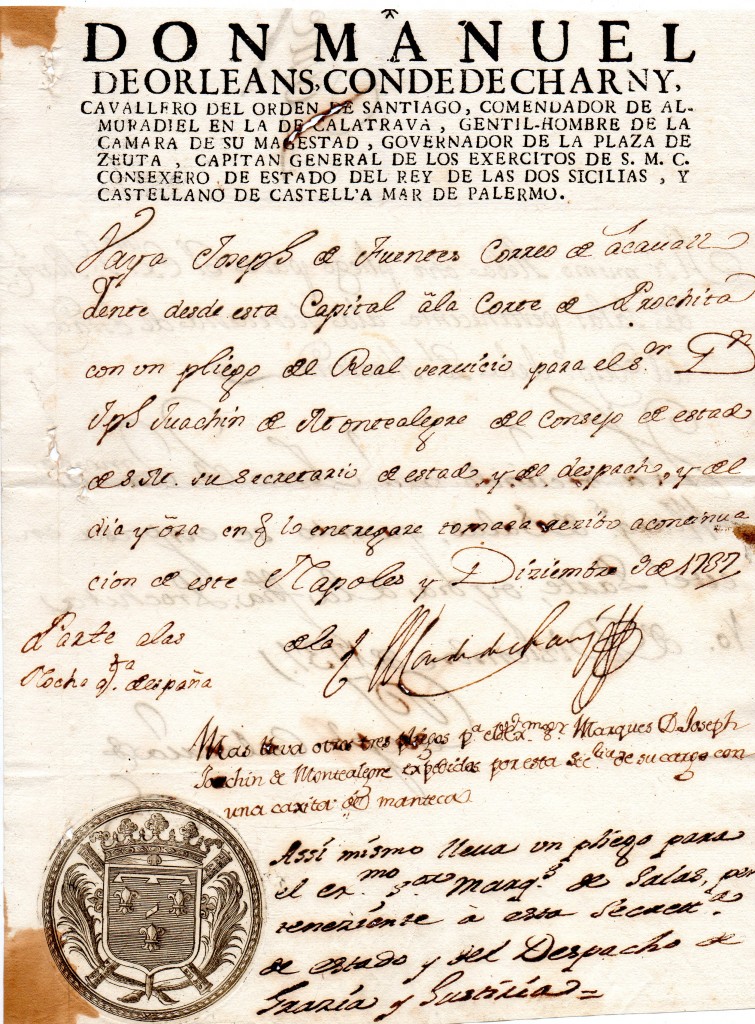 DON MANUEL
DE ORLEANS, CONDE DE CHARNY,
CAVALLERO DEL ORDEN DE SANTIAGO, COMENDADOR DE AL-
MURADIEL EN LA DE CALATRAVA, GENTIL-HOMBRE DE LA
CAMARA DE SU MAGESTAD, GOVERNADOR DE LA PLAZA DE
ZEUTA, CAPITAN GENERAL DE LOS EXERCITOS DE S. M. C.
CONSEXERO DE ESTADO DEL REY DE LAS DOS SICILIAS, Y
CASTELLANO DE CASTELL'A MAR DE PALERMO.
Vaya Joseph de Fuentes Correo de
dente desde esta Capital âla Corte de Prochita
con un pliego del Real servicio para el s.or Dn
Jph Juachin de Montealegre del Consejo de estad
de S. M. su secretario de estad, y del despach, y del
dia y ôra en q lo entregare tomara rezivo a continua
cion de este Napoles y Diziembre 9 de 1737
Parte a las
Noche de españa
de la
Mas lleva otros tres pliegos pa el ex mo sr Marques D. Joseph
Joachin de Montealegre expedidos por esta Sec.ria de su cargo con
una caxita de manteca
Assi mismo lleua un pliego para
el ex.mo s.or Marq.s de Salas, per
teneziente à essa Secret.a
de estado y del Despacho de
Grazia y Justizia =